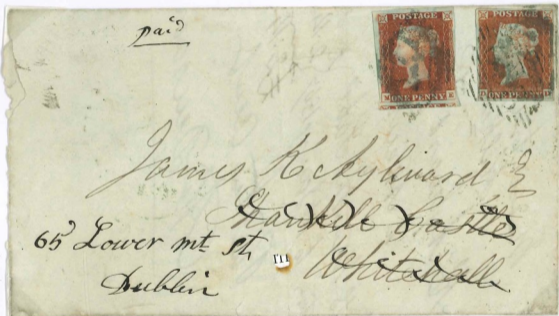 paid
POSTAGE
ONE PENNY
POSTAGE
James K Aylward E
Shankill Castle
Whitehall
65 Lower Mt St,
Dublin